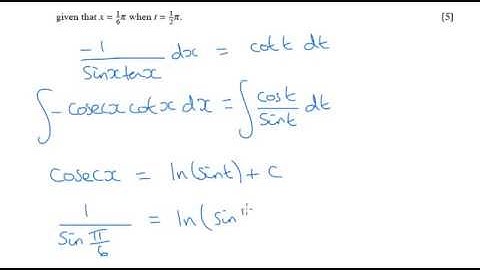 given that x = 1/6 π when t = 1/2 π. [5]
-1/(sinx tanx) dx = cot t dt
∫ -cosecx cotx dx = ∫ cost/sint dt
cosecx = ln(sint) + c
1/(sin π/6) = ln(sin